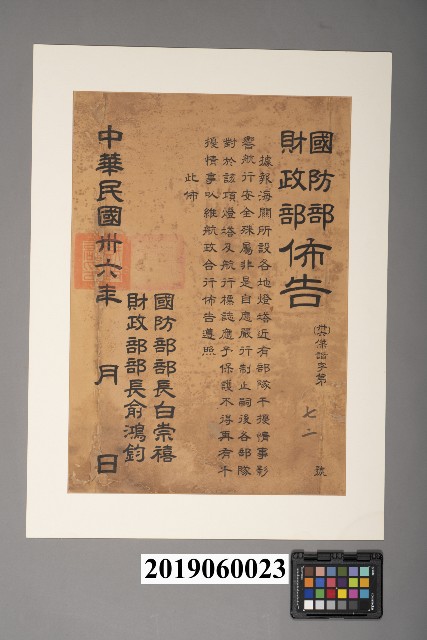 國防部
財政部
佈告
字第
七二
號
據報海關所設各地燈塔近有部隊干擾情事影
響航行安全殊屬非是自應嚴行制止嗣後各部隊
對於該項燈塔及航行標誌應予保護不得再有干
擾情事以維航政合行佈告遵照
此佈
國防部部長白崇禧
財政部部長俞鴻鈞
中華民國卅六年 月 日
2019060023